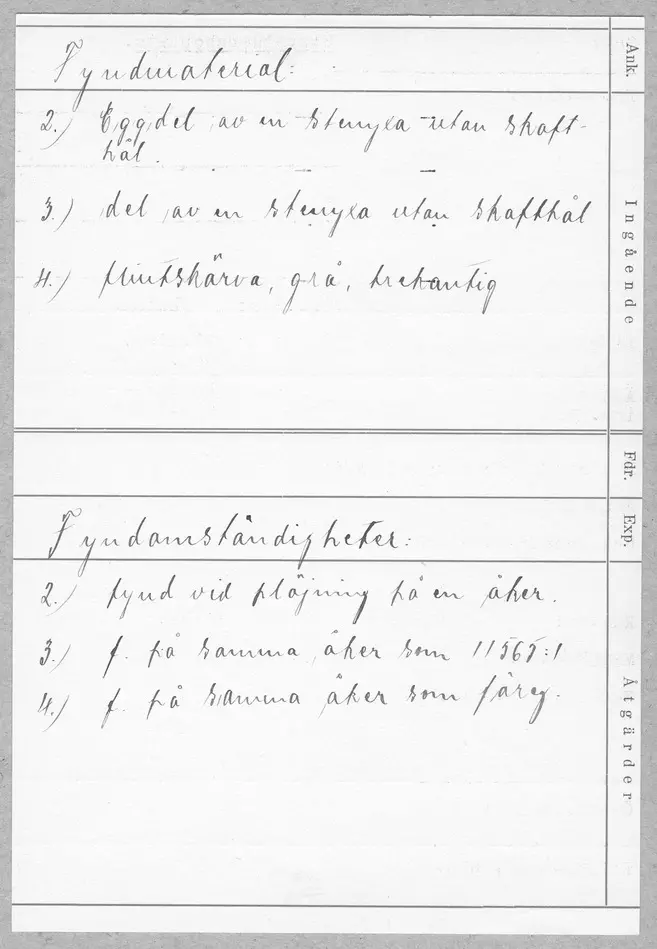 Fyndmaterial:
2.) Eggdel av en stenyxa utan skaft-
hål.
3.) del av en stenyxa utan skafthål
4.) flintskärva, grå, trekantig
Fyndomständigheter:
2.) fynd vid plöjning på en åker.
3.) f. på samma åker som 11565:1
4.) f. på samma åker som föreg.
Ank.
Ingående
Fdr.
Exp.
Åtgärder